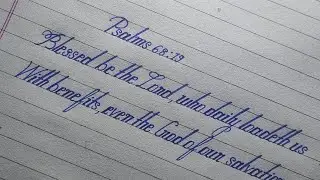 Psalms 68:19
Blessed be the Lord, who daily loadeth us
With benefits, even the God of our salvation